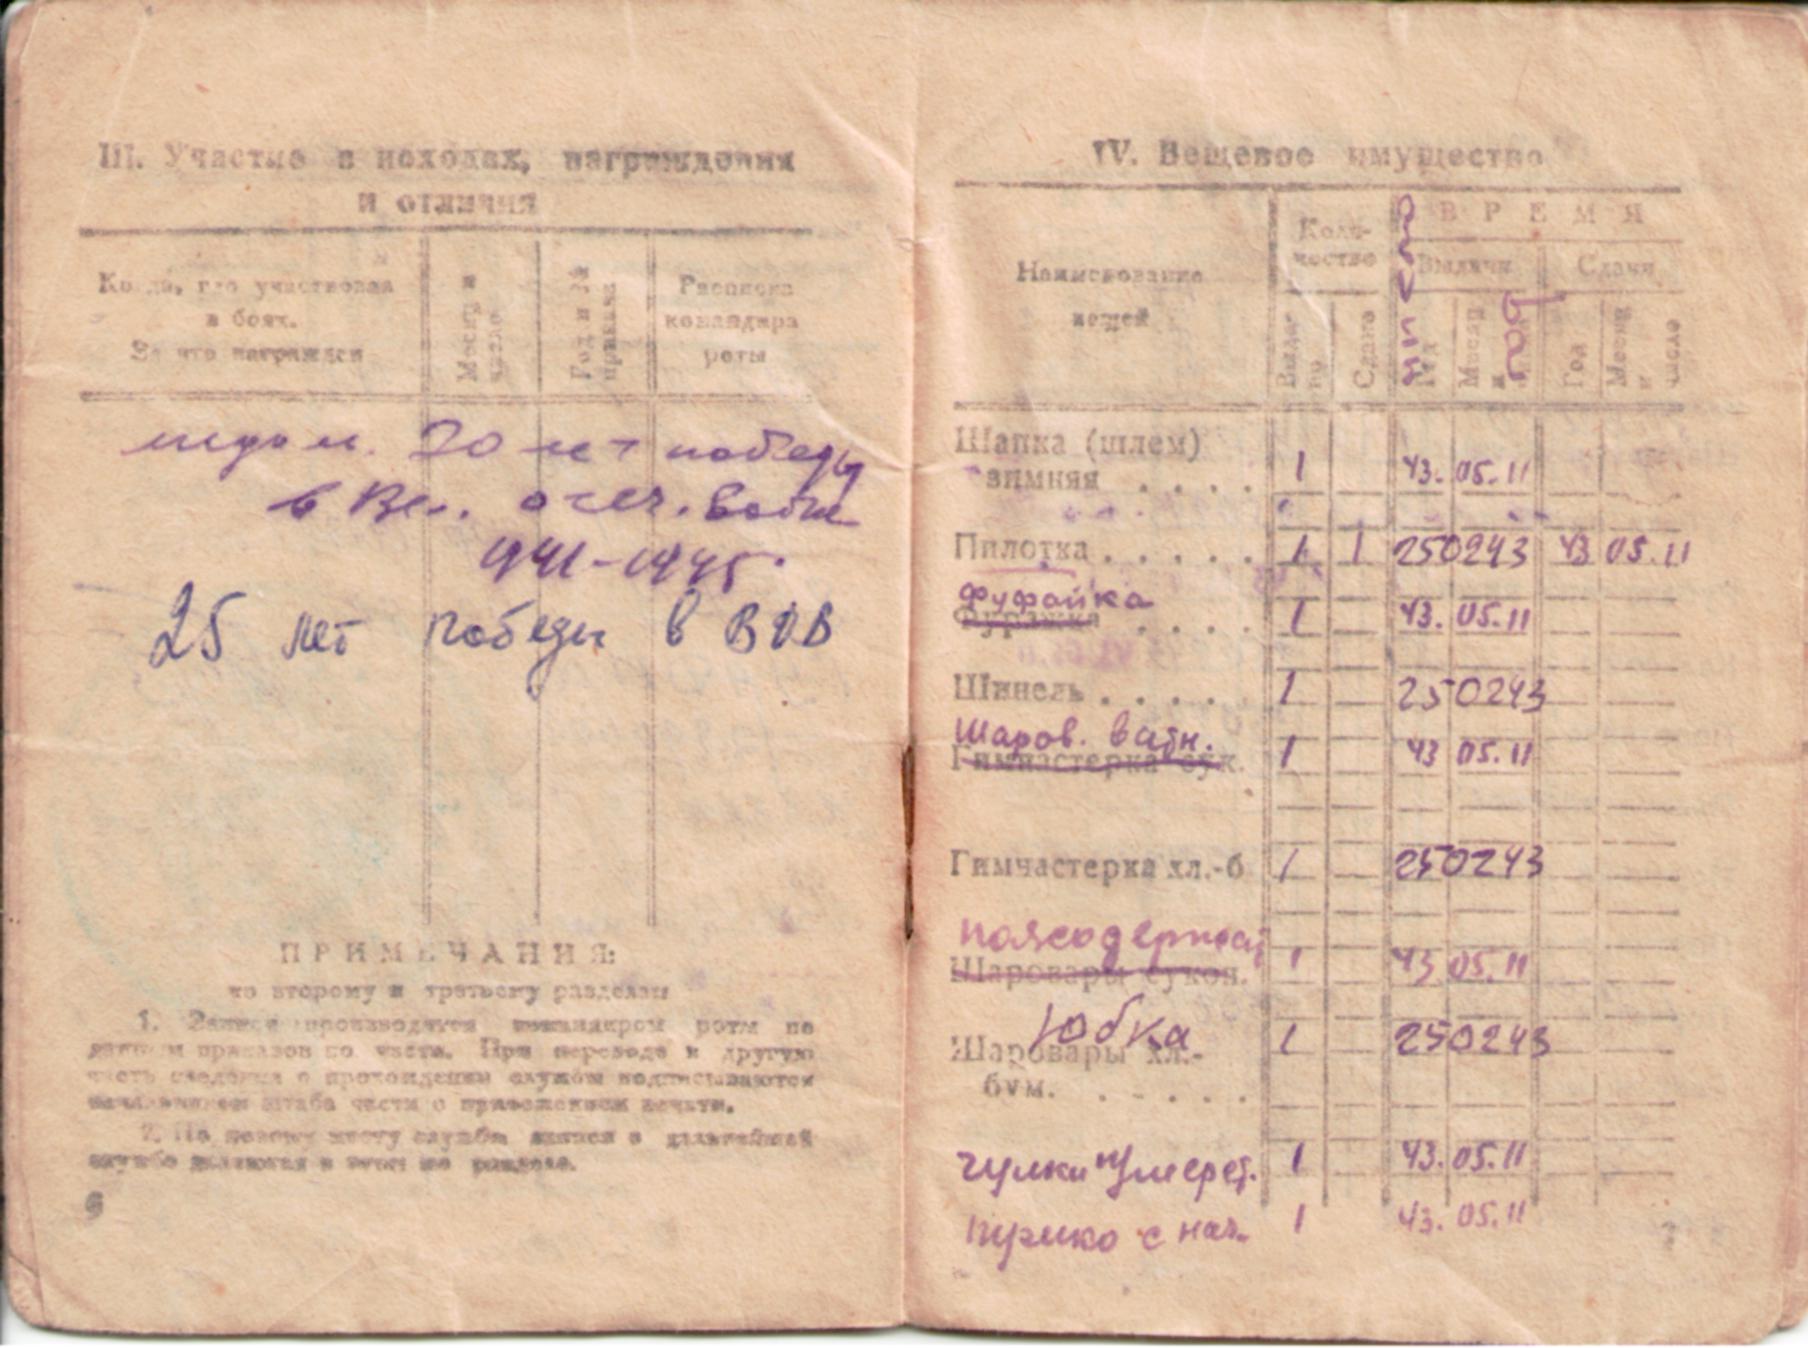 III. Участие в походах, награждения
и отличия
Когда, где участвовал
в боях.
За что награжден
Месяц и
число
Год и №
приказа
Расписка
командира
роты
медаль 20 лет победы
в Вел. отеч. войне
1941-1945
25 лет победы в ВОВ
ПРИМЕЧАНИЯ:
ко второму и третьему разделам
1. Записи производятся командиром роты по
данным приказов по части. При переводе в другую
часть сведения о прохождении службы подписываются
начальником штаба части с приложением печати.
2. По новому месту службы записи о дальнейшей
службе делаются в том же разделе.
6
IV. Вещевое имущество
Наименование
вещей
Коли-
чество
ВРЕМЯ
Выдачи
Сдачи
Выда-
но
Сдано
Год
Месяц
и
Год
Месяц
и
число
Шапка (шлем)
зимняя . . . . 1 43. 05.11
Пилотка . . . . . 1 1 250243 43 05.11
фуфайка
Фуражка . . . . 1 43. 05.11
Шинель . . . . . 1 250243
Шаров. ватн.
Гимнастерка сук. 1 43 05.11
Гимнастерка хл.-б 1 250243
поясодержат
Шаровары сукон. 1 43 05.11
Юбка 1 250243
Шаровары хл.-
бум. . . . . .
чулки 1 43. 05.11
1 43. 05.11